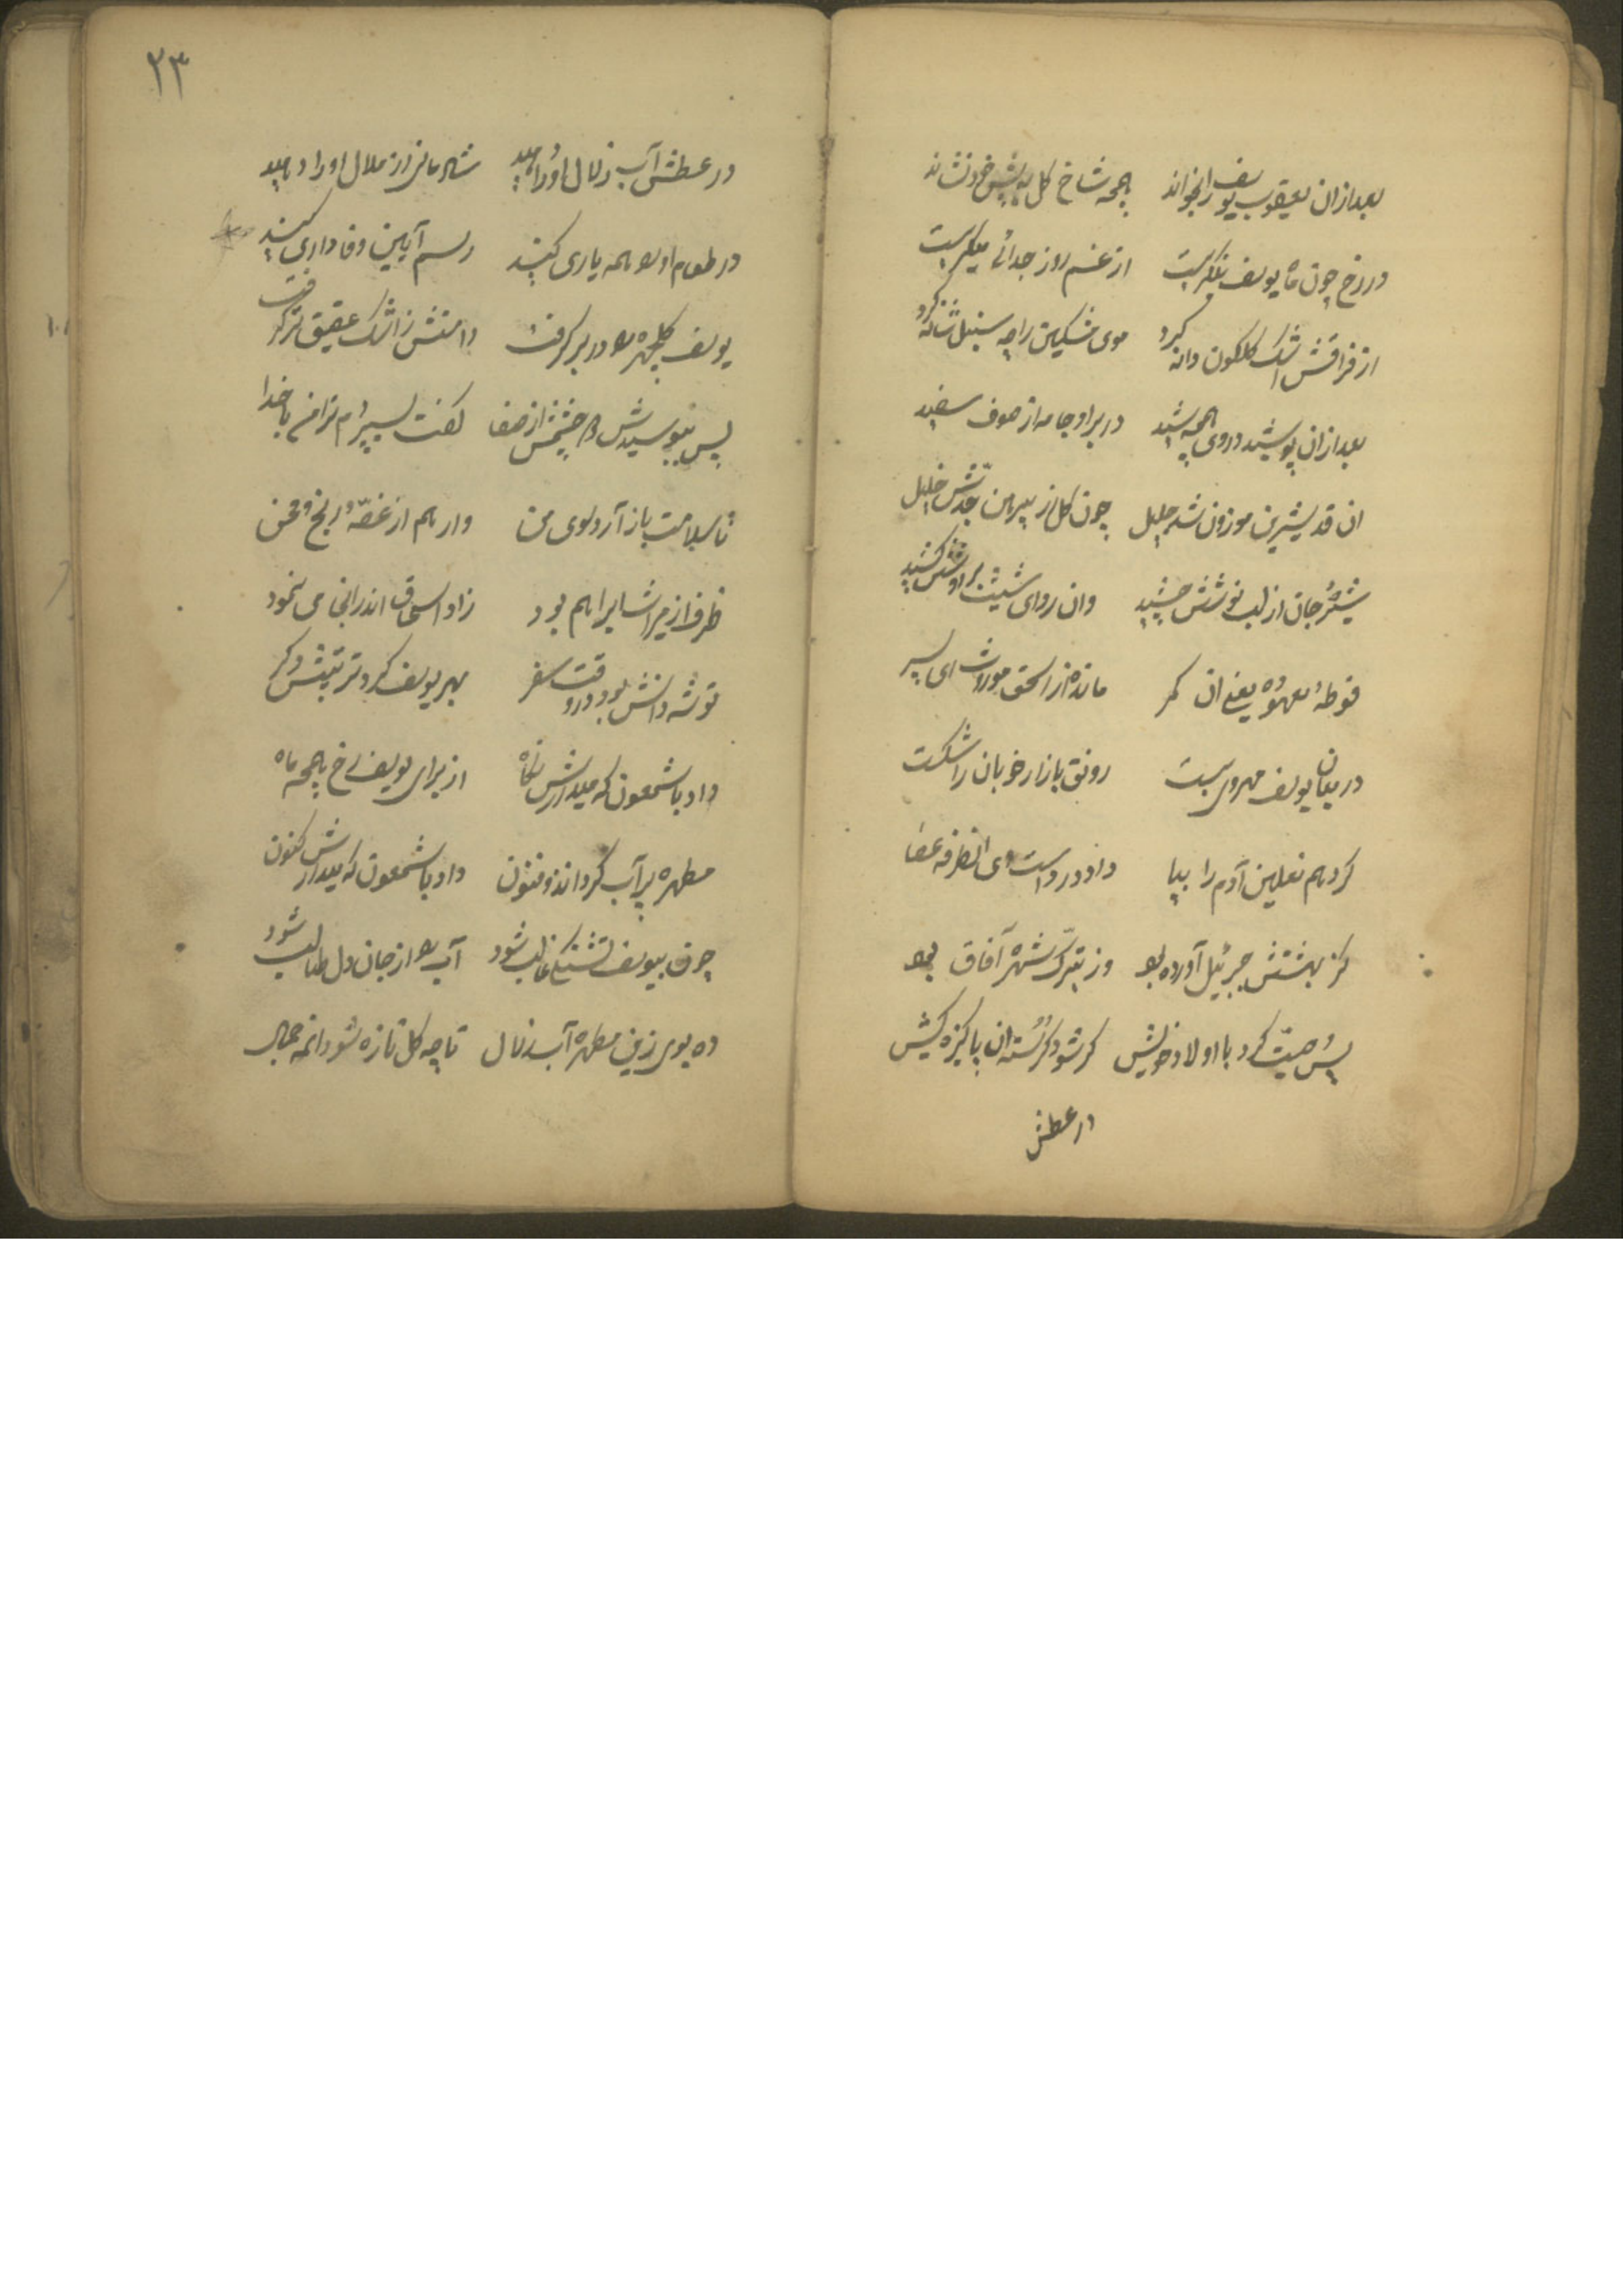 بعد ازان یعقوب یوسف را بخواند همچو شاخ گل به پیش خود نشاند
در رخ چون ماه یوسف بنگریست از غم روز جدائی میگریست
از فراقش اشک گلگون دانه کرد موی مشکین را چو سنبل شانه کرد
بعد ازان پوشید در وی همچو شید در بر او جامه از صوف سفید
ان قد شیرین موزون شد جلیل چون گل از پیراهن جدش خلیل
جان از لب نوشش چشید وان ردای شیث بر دوشش کشید
فوطه یعنی ان کمر مانده از اسحق موروث ای پسر
در میان یوسف مهروی بست رونق بازار خوبان را شکست
کرد هم نعلین آدم را بپا داد در دست وی انطرفه عصا
کز بهشتش جبرئیل آورده بود وز تبرک شهره آفاق بود
پس وصیت کرد با اولاد خویش کر شود کرسنه ان پاکیزه کیش
در عطش
۲۳
در عطش آب زلال او را دهید شادمانی از ملال او را دهید
در طعام او را همه یاری کنید رسم آیین وفاداری کنید
یوسف گلچهره را در بر گرفت دامنش ز اشک عقیق تر گرفت
پس ببوسیدش دو چشمش از صفا گفت بسپردم ترا من با خدا
تا سلامت باز آرد سوی من وارهم از غصه و رنج و محن
ظرفی از میراث ابراهیم بود زاد اسحاق اندر انجا می نمود
توشه دانش بود در وقت سفر بهر یوسف کرد ترتیبش دکر
داد با شمعون که میدارش نگاه از برای یوسف رخ همچو ماه
مطهره پر آب کرد اندوفنون داد با شمعون که میدارش کنون
چون بیوسف تشنگی غالب شود آب را از جان و دل طالب شود
ده بوی زین مطهره آب زلال تا چو گل تازه شود انمه جمال